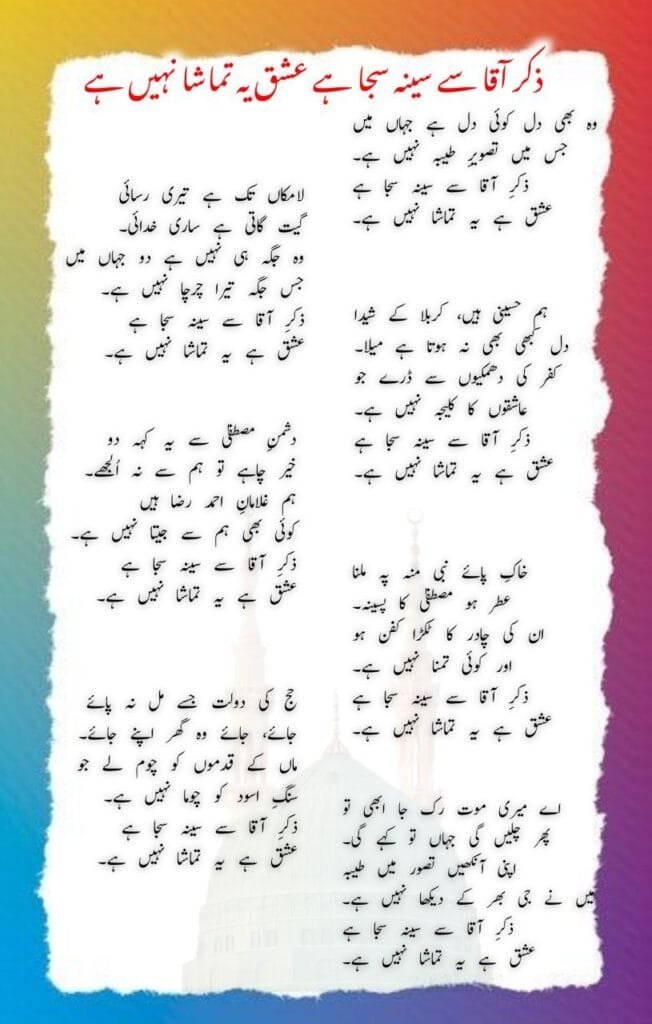 ذکر آقا سے سینہ سجا ہے عشق یہ تماشا نہیں ہے
وہ بھی دل کوئی دل ہے جہاں میں
جس میں تصویرِ طیبہ نہیں ہے۔
ذکرِ آقا سے سینہ سجا ہے
عشق ہے یہ تماشا نہیں ہے۔
ہم حسینی ہیں، کربلا کے شیدا
دل کبھی بھی نہ ہوتا ہے میلا۔
کفر کی دھمکیوں سے ڈرے جو
عاشقوں کا کلیجہ نہیں ہے۔
ذکرِ آقا سے سینہ سجا ہے
عشق ہے یہ تماشا نہیں ہے۔
خاکِ پائے نبی منہ پہ ملنا
عطر ہو مصطفیٰ کا پسینہ۔
ان کی چادر کا ٹکڑا کفن ہو
اور کوئی تمنا نہیں ہے۔
ذکرِ آقا سے سینہ سجا ہے
عشق ہے یہ تماشا نہیں ہے۔
اے میری موت رک جا ابھی تو
پھر چلیں گی جہاں تو کہے گی۔
اپنی آنکھیں تصور میں طیبہ
میں نے جی بھر کے دیکھا نہیں ہے۔
ذکرِ آقا سے سینہ سجا ہے
عشق ہے یہ تماشا نہیں ہے۔
لامکاں تک ہے تیری رسائی
گیت گاتی ہے ساری خدائی۔
وہ جگہ ہی نہیں ہے دو جہاں میں
جس جگہ تیرا چرچا نہیں ہے۔
ذکرِ آقا سے سینہ سجا ہے
عشق ہے یہ تماشا نہیں ہے۔
دشمنِ مصطفیٰ سے یہ کہہ دو
خیر چاہے تو ہم سے نہ اُلجھے۔
ہم غلامانِ احمد رضا ہیں
کوئی بھی ہم سے جیتا نہیں ہے۔
ذکرِ آقا سے سینہ سجا ہے
عشق ہے یہ تماشا نہیں ہے۔
حج کی دولت جسے مل نہ پائے
جائے، جائے وہ گھر اپنے جائے۔
ماں کے قدموں کو چوم لے جو
سنگِ اسود کو چوما نہیں ہے۔
ذکرِ آقا سے سینہ سجا ہے
عشق ہے یہ تماشا نہیں ہے۔